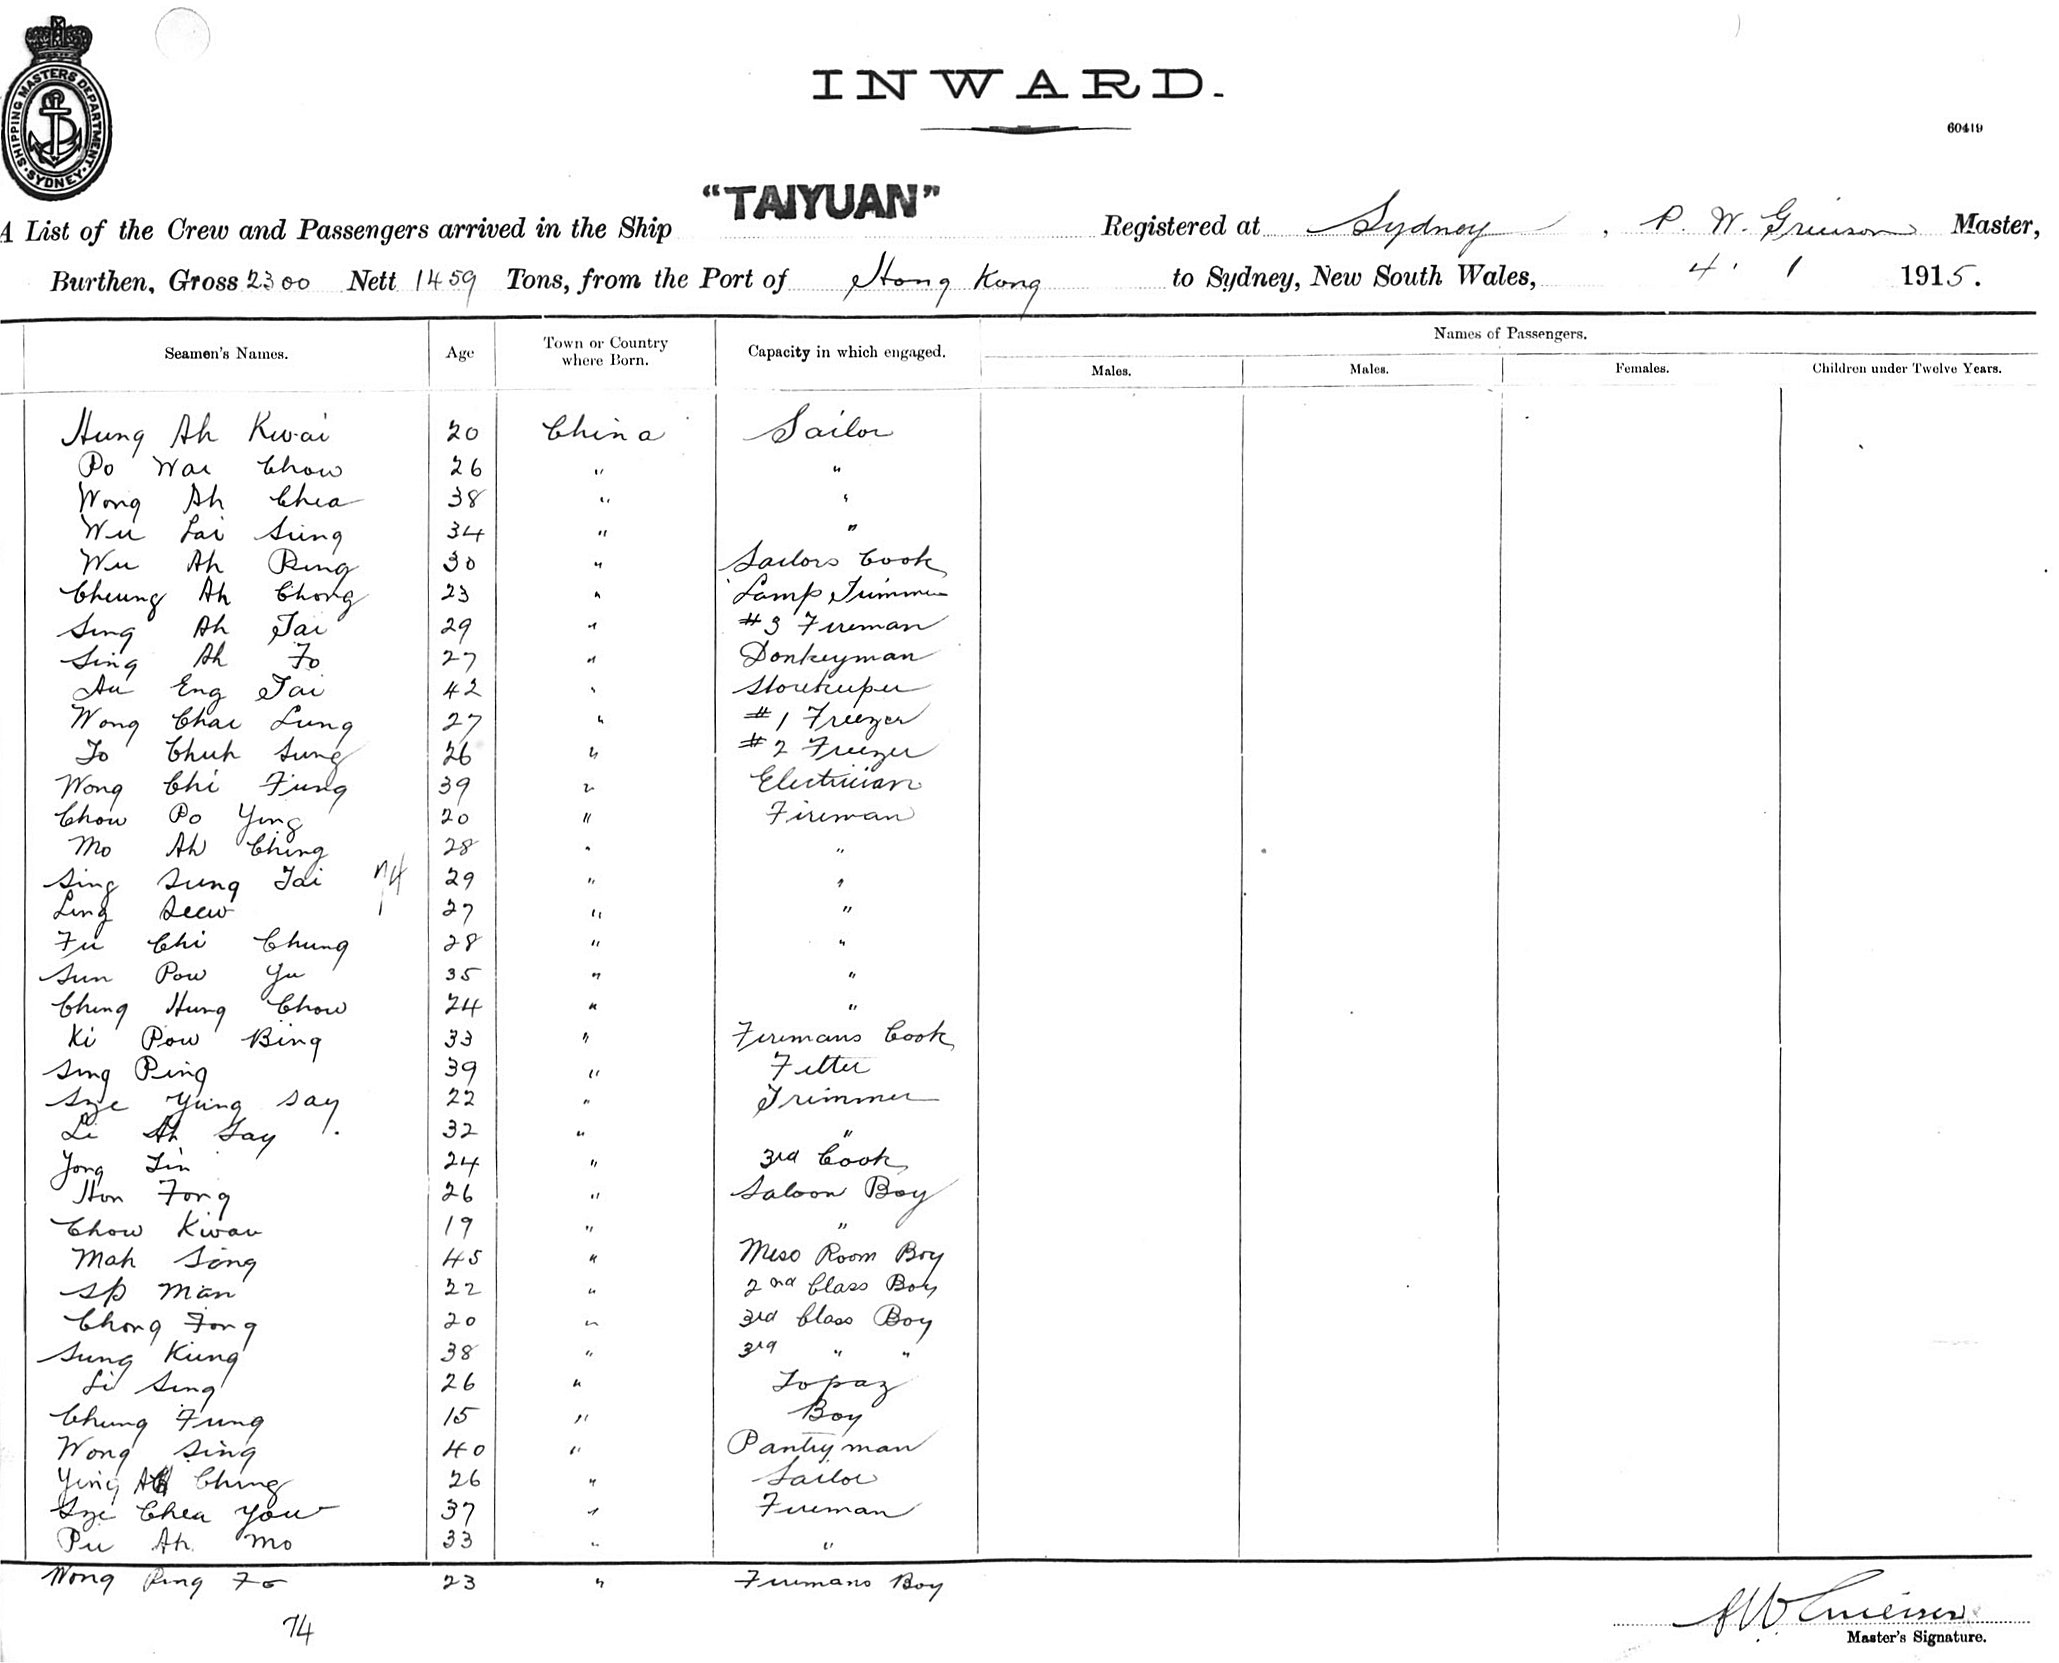 SHIPPING MASTERS DEPARTMENT
SYDNEY
INWARD.
60419
"TAIYUAN"
A List of the Crew and Passengers arrived in the Ship Registered at Sydney, P. W. Grierson Master,
Burthen, Gross 2300 Nett 1459 Tons, from the Port of Hong Kong to Sydney, New South Wales, 4. 1 1915.
Seamen's Names. Age Town or Country where Born. Capacity in which engaged. Names of Passengers.
Males. Males. Females. Children under Twelve Years.
Hung Ah Kwai 20 China Sailor
Po Wai Chow 26 " "
Wong Ah Chea 38 " "
Wu Lai Sung 34 " "
Wu Ah Ping 30 " Sailors Cook
Cheung Ah Chong 23 " Lamp Trimmer
Sing Ah Tai 29 " #3 Fireman
Sing Ah Fo 27 " Donkeyman
Au Eng Tai 42 " Storekeeper
Wong Chai Lung 27 " #1 Freezer
To Chuh Sung 26 " #2 Freezer
Wong Chi Fung 39 " Electrician
Chow Po Ying 20 " Fireman
Mo Ah Ching 28 " "
Sing Sung Tai 74 29 " "
Ling Seew 27 " "
Fu Chi Chung 28 " "
Sun Pow Yu 35 " "
Ching Hung Chow 24 " "
Ki Pow Bing 33 " Firemans Cook
Sing Ping 39 " Fitter
Sze Yung Say 22 " Trimmer
Li Ah Say 32 " "
Yong Lin 24 " 3rd Cook
Hon Fong 26 " Saloon Boy
Chow Kwau 19 " "
Mah Song 45 " Mess Room Boy
Sp Man 22 " 2nd Class Boy
Chong Fong 20 " 3rd Class Boy
Sung Kung 38 " 3rd " "
Li Sing 26 " Topaz
Chung Fung 15 " Boy
Wong Sing 40 " Pantryman
Ying Ah Ching 26 " Sailor
Sze Chea You 37 " Fireman
Pu Ah Mo 33 " "
Wong Ping Fo 23 " Firemans Boy
74
P W Grierson
Master's Signature.